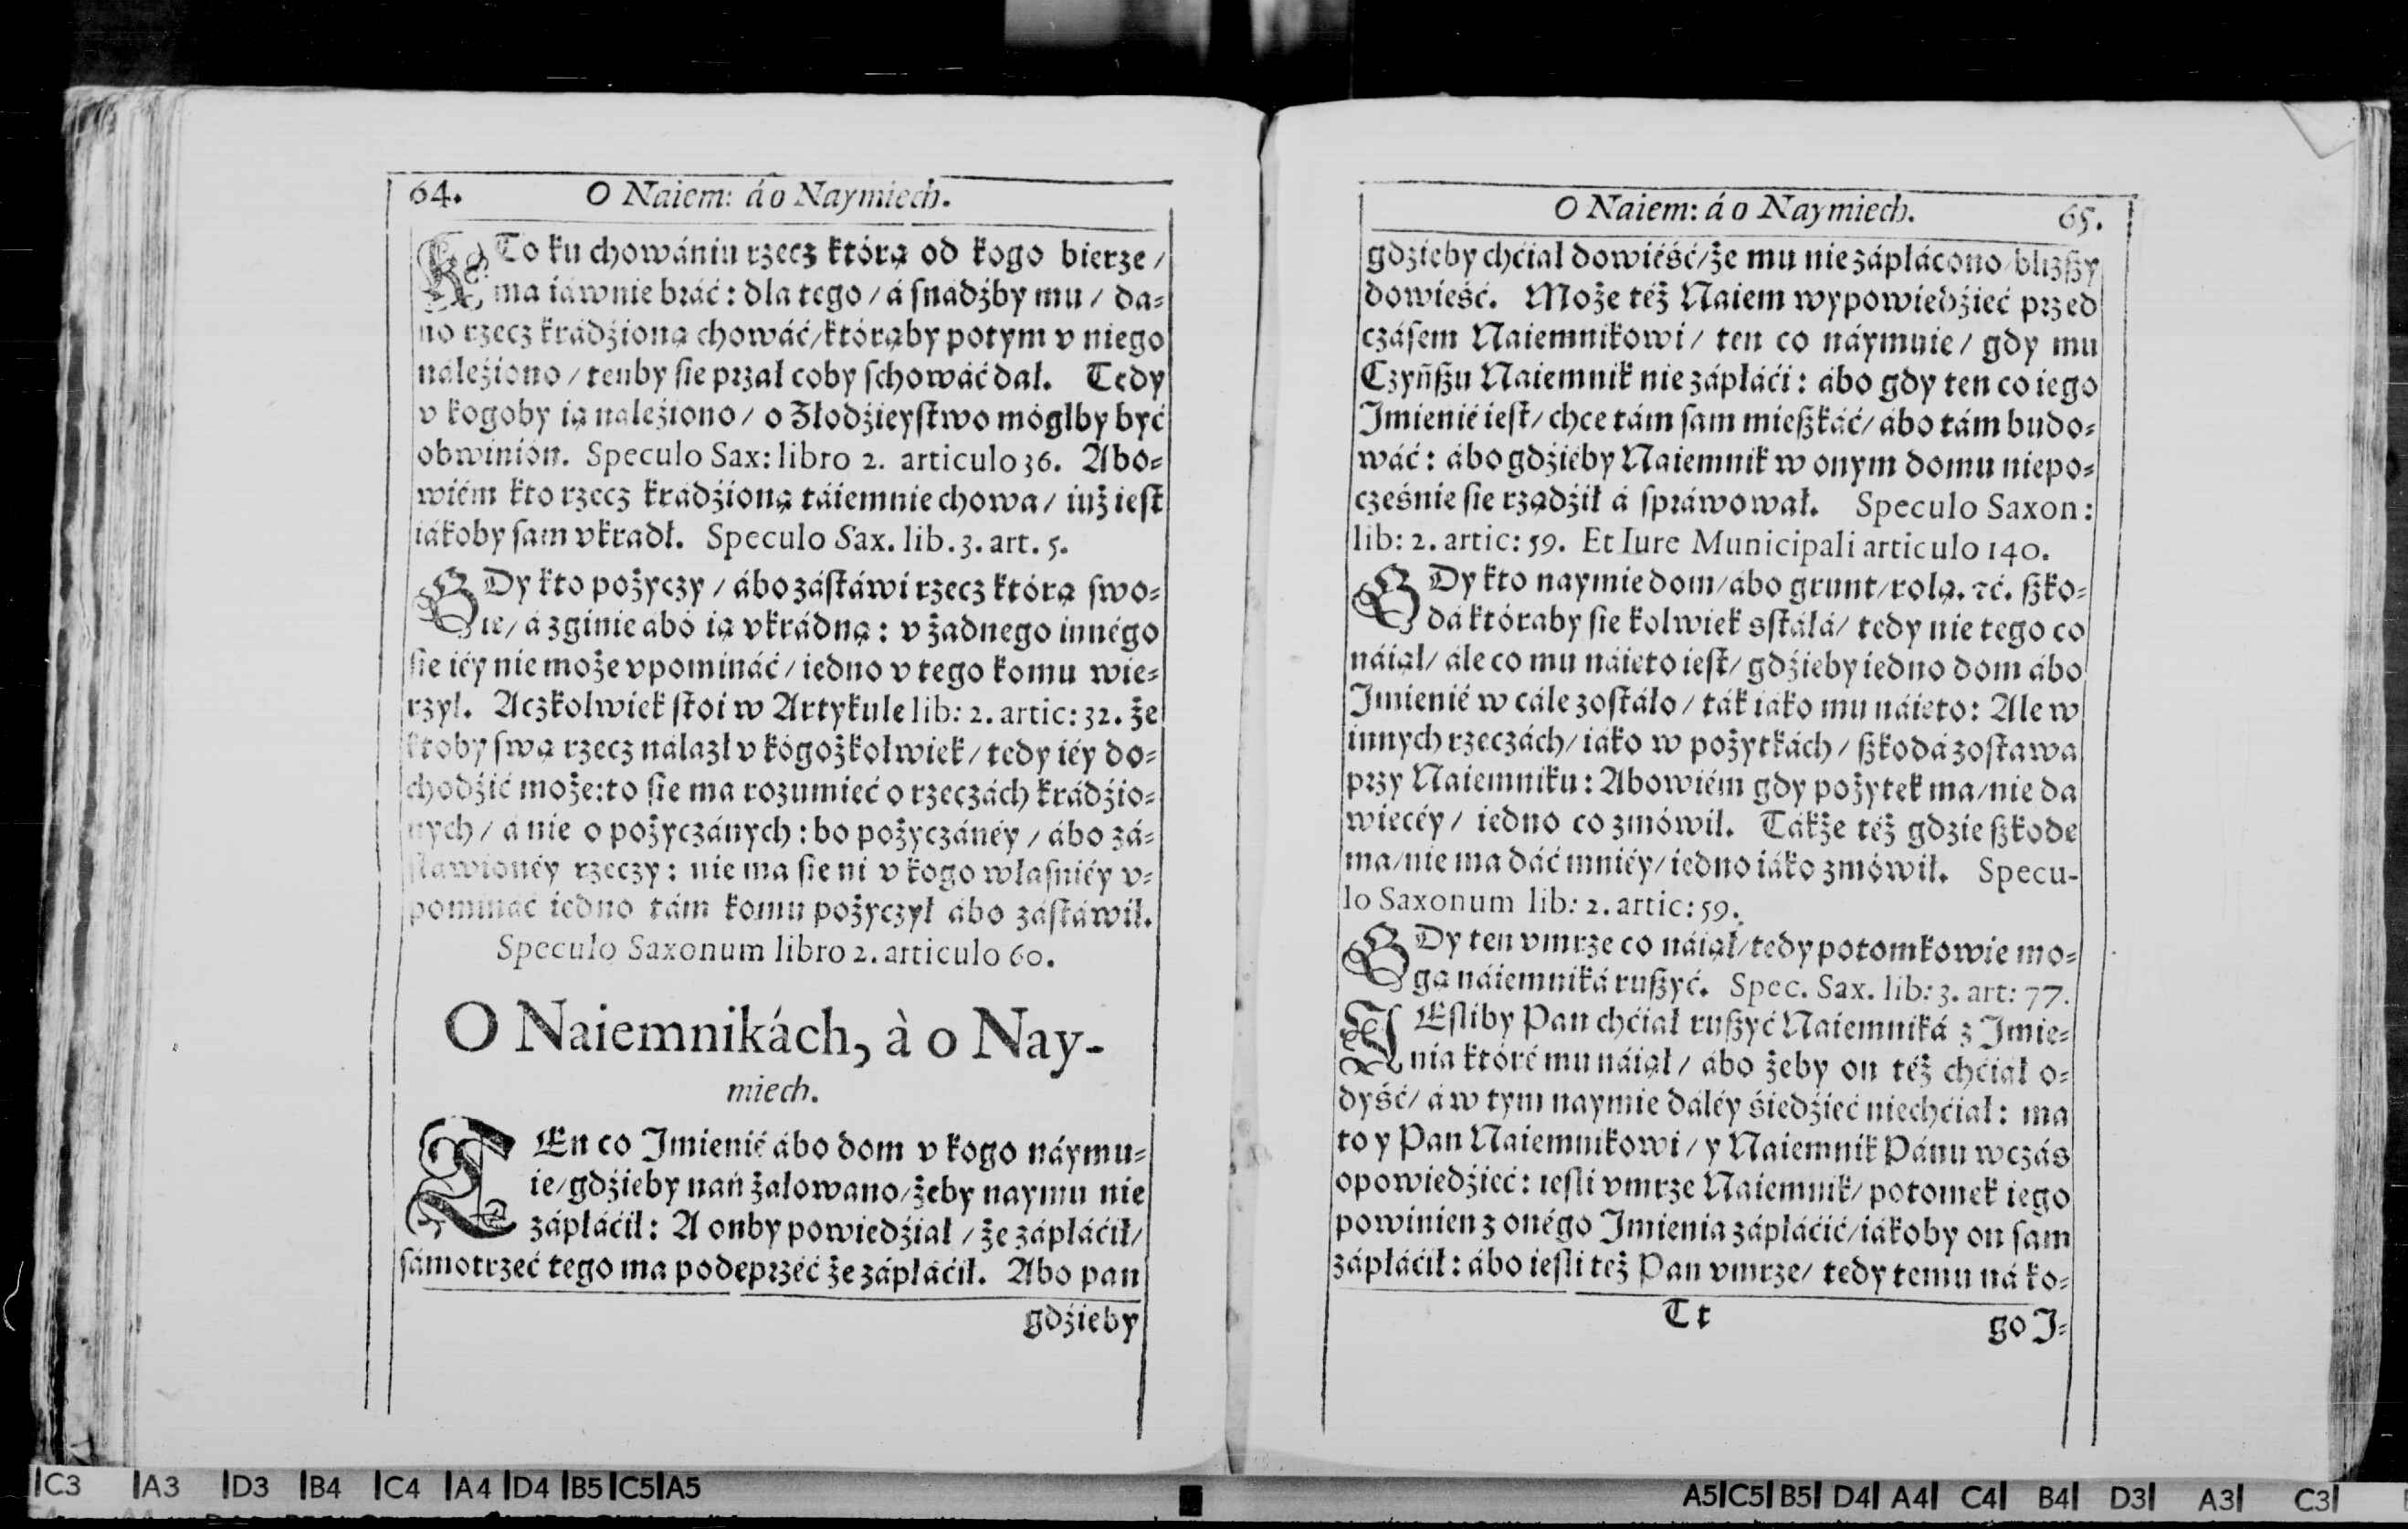 64. O Naiem: á o Naymiech.
KTo ku chowániu rzecz którą od kogo bierze /
ma iáwnie bráć : dla tego / á ſnadźby mu / da-
no rzecz krádźioną chowáć / którąby potym v niego
náleźiono / tenby ſie przał coby ſchowáć dał. Tedy
v kogoby ią naleźiono / o Złodźieyſtwo mógłby być
obwinión. Speculo Sax: libro 2. articulo 36. Abo-
wiém kto rzecz krádźioną táiemnie chowa / iuż ieſt
iákoby ſam vkradł. Speculo Sax. lib. 3. art. 5.
GDy kto pożyczy / ábo záſtáwi rzecz którą ſwo-
ie / á zginie ábo ią vkrádną : v żadnego innégo
ſie iéy nie może vpomináć / iedno v tego komu wie-
rzył. Aczkolwiek ſtoi w Artykule lib: 2. artic: 32. że
ktoby ſwą rzecz nálazł v kógożkolwiek / tedy iéy do-
chodźić może: to ſie ma rozumieć o rzeczách krádźio-
nych / á nie o pożyczánych : bo pożyczánéy / ábo zá-
ſtawionéy rzeczy : nie ma ſie ni v kogo właſniéy v-
pomináć iedno tám komu pożyczył ábo záſtáwił.
Speculo Saxonum libro 2. articulo 60.
O Naiemnikách, à o Nay-
miech.
TEn co Imienié ábo dom v kogo náymu-
ie / gdźieby nań żałowano / żeby naymu nie
zápłáćił : A onby powiedźiał / że zápłáćił /
ſámotrzeć tego ma podeprzéć że zápłáćił. Abo pan
gdźieby
O Naiem: á o Naymiech. 65.
gdzieby chćiał dowiéść / że mu nie zápłácono / bliżſzy
dowieść. Może téż Naiem wypowiedźieć przed
czáſem Naiemnikowi / ten co náymuie / gdy mu
Czyńſzu Naiemnik nie zápłáći : ábo gdy ten co iego
Imienié ieſt / chce tám ſam mieſzkáć / ábo tám budo-
wáć : ábo gdźiéby Naiemnik w onym domu niepo-
cześnie ſie rządźił á ſpráwował. Speculo Saxon:
lib: 2. artic: 59. Et Iure Municipali articulo 140.
GDy kto naymie dom / ábo grunt / rolą. ꝛć. ſzko-
dá któraby ſie kolwiek sſtáłá / tedy nie tego co
náiął / ále co mu náieto ieſt / gdźieby iedno dom ábo
Imienié w cále zoſtáło / ták iáko mu náieto : Ale w
innych rzeczách / iáko w pożytkách / ſzkodá zoſtawa
przy Naiemniku : Abowiém gdy pożytek ma / nie da
wiecéy / iedno co zmówił. Tákże téż gdzie ſzkode
ma / nie ma dáć mniéy / iedno iáko zmówił. Specu-
lo Saxonum lib: 2. artic: 59.
GDy ten vmrze co náiął / tedy potomkowie mo-
gą náiemniká ruſzyć. Spec. Sax. lib: 3. art: 77.
IEſliby Pan chćiał ruſzyć Naiemniká z Imie-
nia któré mu náiął / ábo żeby on téż chćiał o-
dyść / á w tym naymie dáléy śiedźieć niechćiał : ma
to y Pan Naiemnikowi / y Naiemnik Pánu wczás
opowiedźieć : ieſli vmrze Naiemnik / potomek iego
powinien z onégo Imienia zápłáćić / iákoby on ſam
zápłáćił : ábo ieſli też Pan vmrze / tedy temu ná ko-
Tt go I-
C3 A3 D3 B4 C4 A4 D4 B5 C5 A5
A5 C5 B5 D4 A4 C4 B4 D3 A3 C3